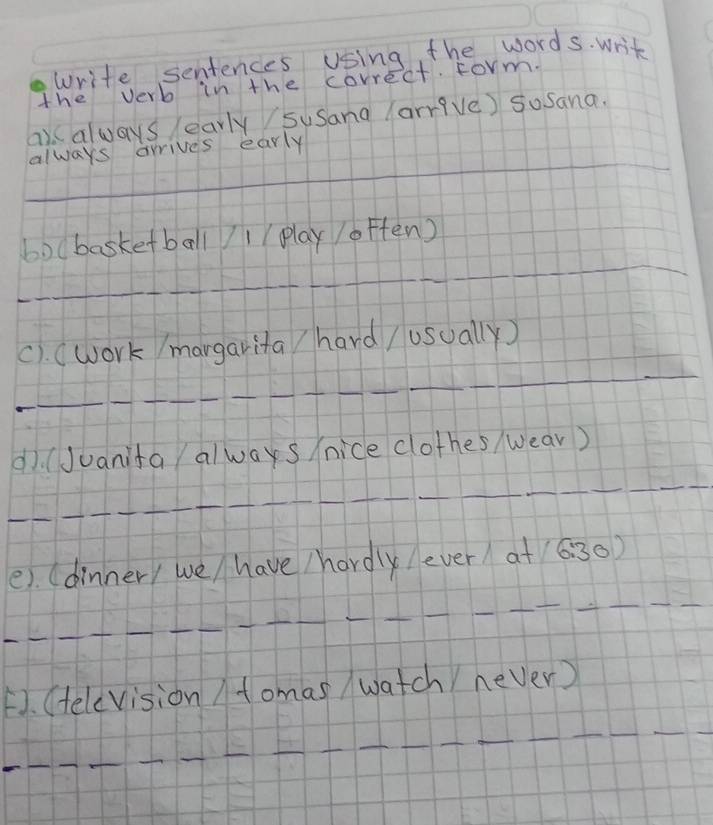 Write sentences using the words. Writ
the verb in the correct. Form.
a).(always/early/Susana/arrive) Susana.
always arrives early
b)(basketball/I/play/often)
c).(work/margarita/hard/usually)
d).(Juanita/always/nice clothes/wear)
e).(dinner/we/have/hardly/ever/at/6:30)
F).(television/tomas/watch/never)